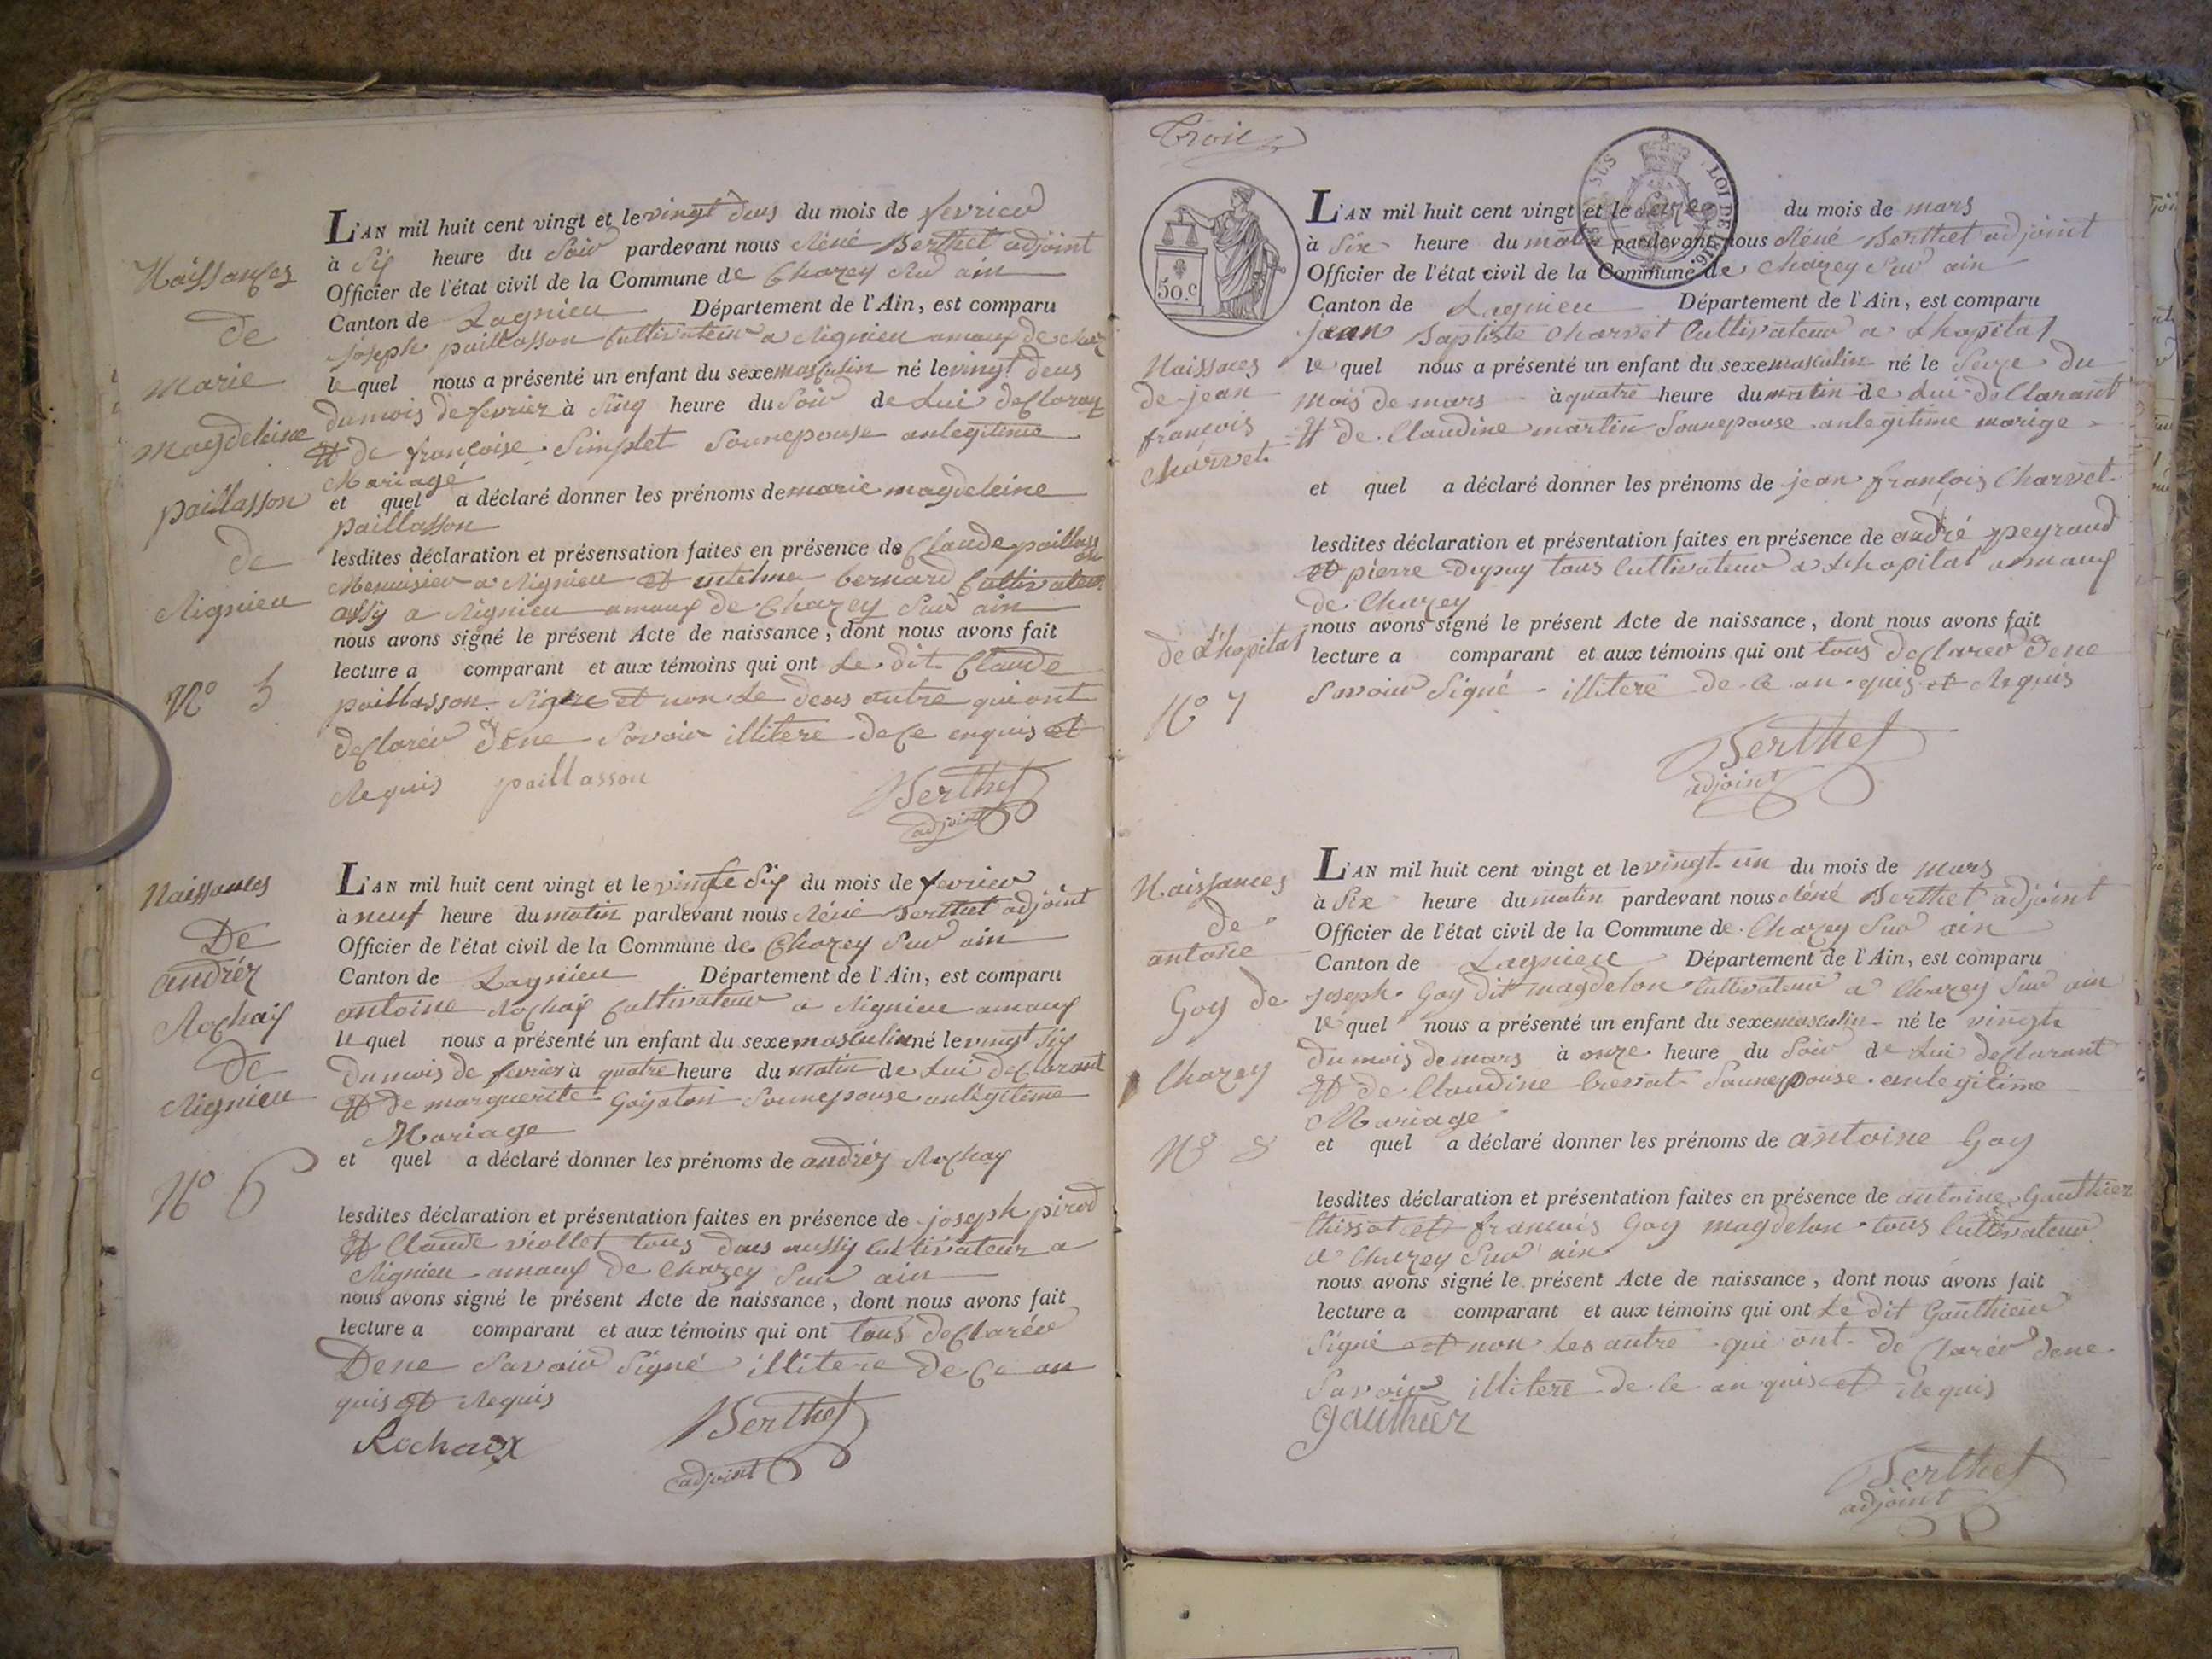 Naissances
de
marie
magdeleine
paillasson
de
Rignieu
N° 5
L'AN mil huit cent vingt et le vingt deus du mois de fevrier
à Six heure du Soir pardevant nous Réné Berthet adjoint
Officier de l'état civil de la Commune de Chazey Sur ain
Canton de Lagnieu Département de l'Ain, est comparu
joseph paillasson Cultivateur a Rignieu amaux de chaz
le quel nous a présenté un enfant du sexe masculin né le vingt deus
du mois de fevrier à Sinq heure du Soir de Lui declarant
Et de françoise Simplet Sounepouse anlegitime
Mariage
et quel a déclaré donner les prénoms de marie magdeleine
paillasson
lesdites déclaration et présensation faites en présence de Claude paillass
on
Menuisier a Rignieu et entelme bernard Cultivateur
ausy a Rignieu amaux de Chazey Sur ain
nous avons signé le présent Acte de naissance, dont nous avons fait
lecture a comparant et aux témoins qui ont Le dit Claude
paillasson Signe et non Le deus autre qui ont
declarér dene Savoir illitere de Ce enquis et
Requis paillasson
Berthet
adjoint
Naissances
De
andréz
Rochaix
De
Rignieu
N° 6
L'AN mil huit cent vingt et le vingte Six du mois de fevrier
à neuf heure du matin pardevant nous Réné Berthet adjoint
Officier de l'état civil de la Commune de Chazey Sur ain
Canton de Lagnieu Département de l'Ain, est comparu
antoine Rochaix Cultivateur a Rignieu amaux
le quel nous a présenté un enfant du sexe masculin né le vingt Six
du mois de fevrier à quatre heure du matin de Lui declarant
Et de marguerite Goyaton Sounepouse anlégitime
Mariage
et quel a déclaré donner les prénoms de andréz Rochay
lesdites déclaration et présentation faites en présence de joseph pirod
Et Claude viollet tous deus aussy Cultivateur a
Rignieu amaux de Chazey Sur ain
nous avons signé le présent Acte de naissance, dont nous avons fait
lecture a comparant et aux témoins qui ont tous declarér
Dene Savoir Signé illitere de Ce an
quis et Requis
Rochaix
Berthet
adjoint
Trois
50.C
LOI DE 1816
Naissaces
de jean
françois
Charvet
de L'hopital
N° 7
L'AN mil huit cent vingt et le seize du mois de mars
à Six heure du matin pardevant nous Réné Berthet adjoint
Officier de l'état civil de la Commune de Chazey Sur ain
Canton de Lagnieu Département de l'Ain, est comparu
jean Baptiste Charvet Cultivateur a Lhopital
le quel nous a présenté un enfant du sexe masculin né le Seize du
Mois de mars à quatre heure du matin de Lui declarant
Et de Claudine martin Sounepouse anlegitime marige
et quel a déclaré donner les prénoms de jean françois Charvet
lesdites déclaration et présentation faites en présence de andré peyraud
et pierre Dupuy tous Cultivateur a Lhopital amaux
de Chazey
nous avons signé le présent Acte de naissance, dont nous avons fait
lecture a comparant et aux témoins qui ont tous declarer dene
Savoir Signé illitere de Ce an quis et Requis
Berthet
adjoint
Naissances
de
antoine
Goy de
Chazey
N° 8
L'AN mil huit cent vingt et le vingt un du mois de mars
à Six heure du matin pardevant nous Réné Berthet adjoint
Officier de l'état civil de la Commune de Chazey Sur ain
Canton de Lagnieu Département de l'Ain, est comparu
joseph Goy dit magdelon Cultivateur a Chazey Sur ain
le quel nous a présenté un enfant du sexe masculin né le vingt
du mois de mars à onze heure du Soir de Lui declarant
Et de Claudine bressat Sounepouse anlegitime
Mariage
et quel a déclaré donner les prénoms de antoine Goy
lesdites déclaration et présentation faites en présence de antoine Gauthier
thissot et francois Goy magdelon tous Cultivateur
a Chazey Sur ain
nous avons signé le présent Acte de naissance, dont nous avons fait
lecture a comparant et aux témoins qui ont Le dit Gauthier
Signé et non Les autre qui ont de Clarér dene
Savoir illitere de Ce an quis et Requis
Gauthier
Berthet
adjoint